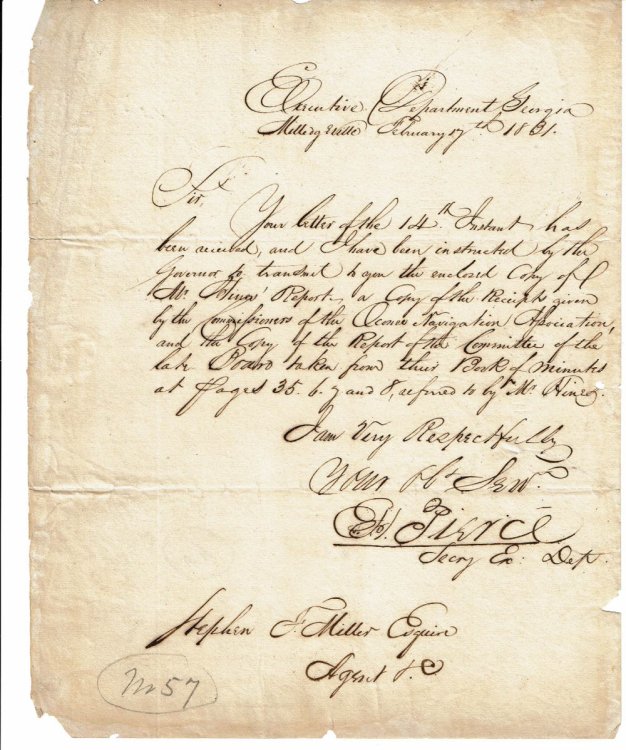 Executive Department Georgia
Milledgeville February 17th 1831.
Sir,
Your letter of the 14th Instant has
been received, and I have been instructed by the
Governor to transmit to you the enclosed Copy of
Mr Hines' Report, a Copy of the Receipts given
by the Commissioners of the Oconee Navigation Association,
and the Copy of the Report of the Committee of the
late Board taken from their Book of minutes
at Pages 35. 6. 7 and 8, referred to by Mr Hines.
I am Very Respectfully
Your Obt Servt.
Pierce
Secry Ex: Dept.
Stephen F Miller Esquire
Agent &c
57